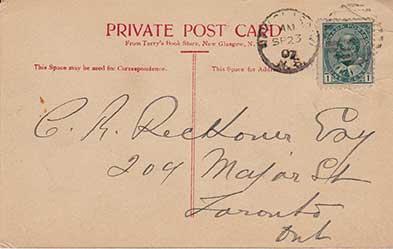 PRIVATE POST CARD
From Terry's Book Store, New Glasgow, N.
This Space may be used for Correspondence.
This Space for Addr
AM
SP 23
07
N. S.
1
1
C. R. Reckoner Esq
209 Major St
Toronto
Ont